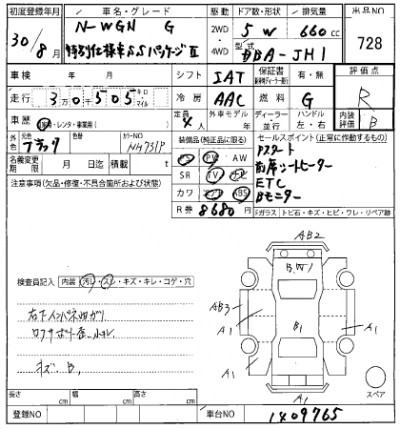 初度登録年月 車名・グレード 2WD ドア数・形状 排気量 出品NO
30/8月 N-WGN G 5 W 660cc 728
特別仕様車SSパッケージⅡ 4WD 型式 DBA-JH1
車検 年 月 シフト IAT 保証書 有・無 評価点
走行 3万0千505 キロ マイル 冷房 AAC 外車モデル 燃料 G R
車歴 自家・レンタ・事業用( ) 定員 4人 ディーラー 並行 ハンドル 左・右 内装評価 B
外色 元色 ブラック 色替 カラーNO NH731P 装備品(純正品に限る) セールスポイント(正常に作動するもの)
名義変更期限 月 日迄 積載 t PS PW AW Pスタート
注意事項(欠品・修復・不具合箇所および状態) SR TV ナビ 前席シートヒーター
カワ エアB ABS ETC
Bモニター
R券 8680円 Fガラス トビ石・キズ・ヒビ・ワレ・リペア跡
AB2
検査員記入 内装 汚レ・スレ・キズ・キレ・コゲ・穴 BW1
右下インパネ
AB3 B1
A1 A1
キズ、B,
A1 A1
スペア
長さ cm 幅 cm 高さ cm A1
登録NO 車台NO 1409765